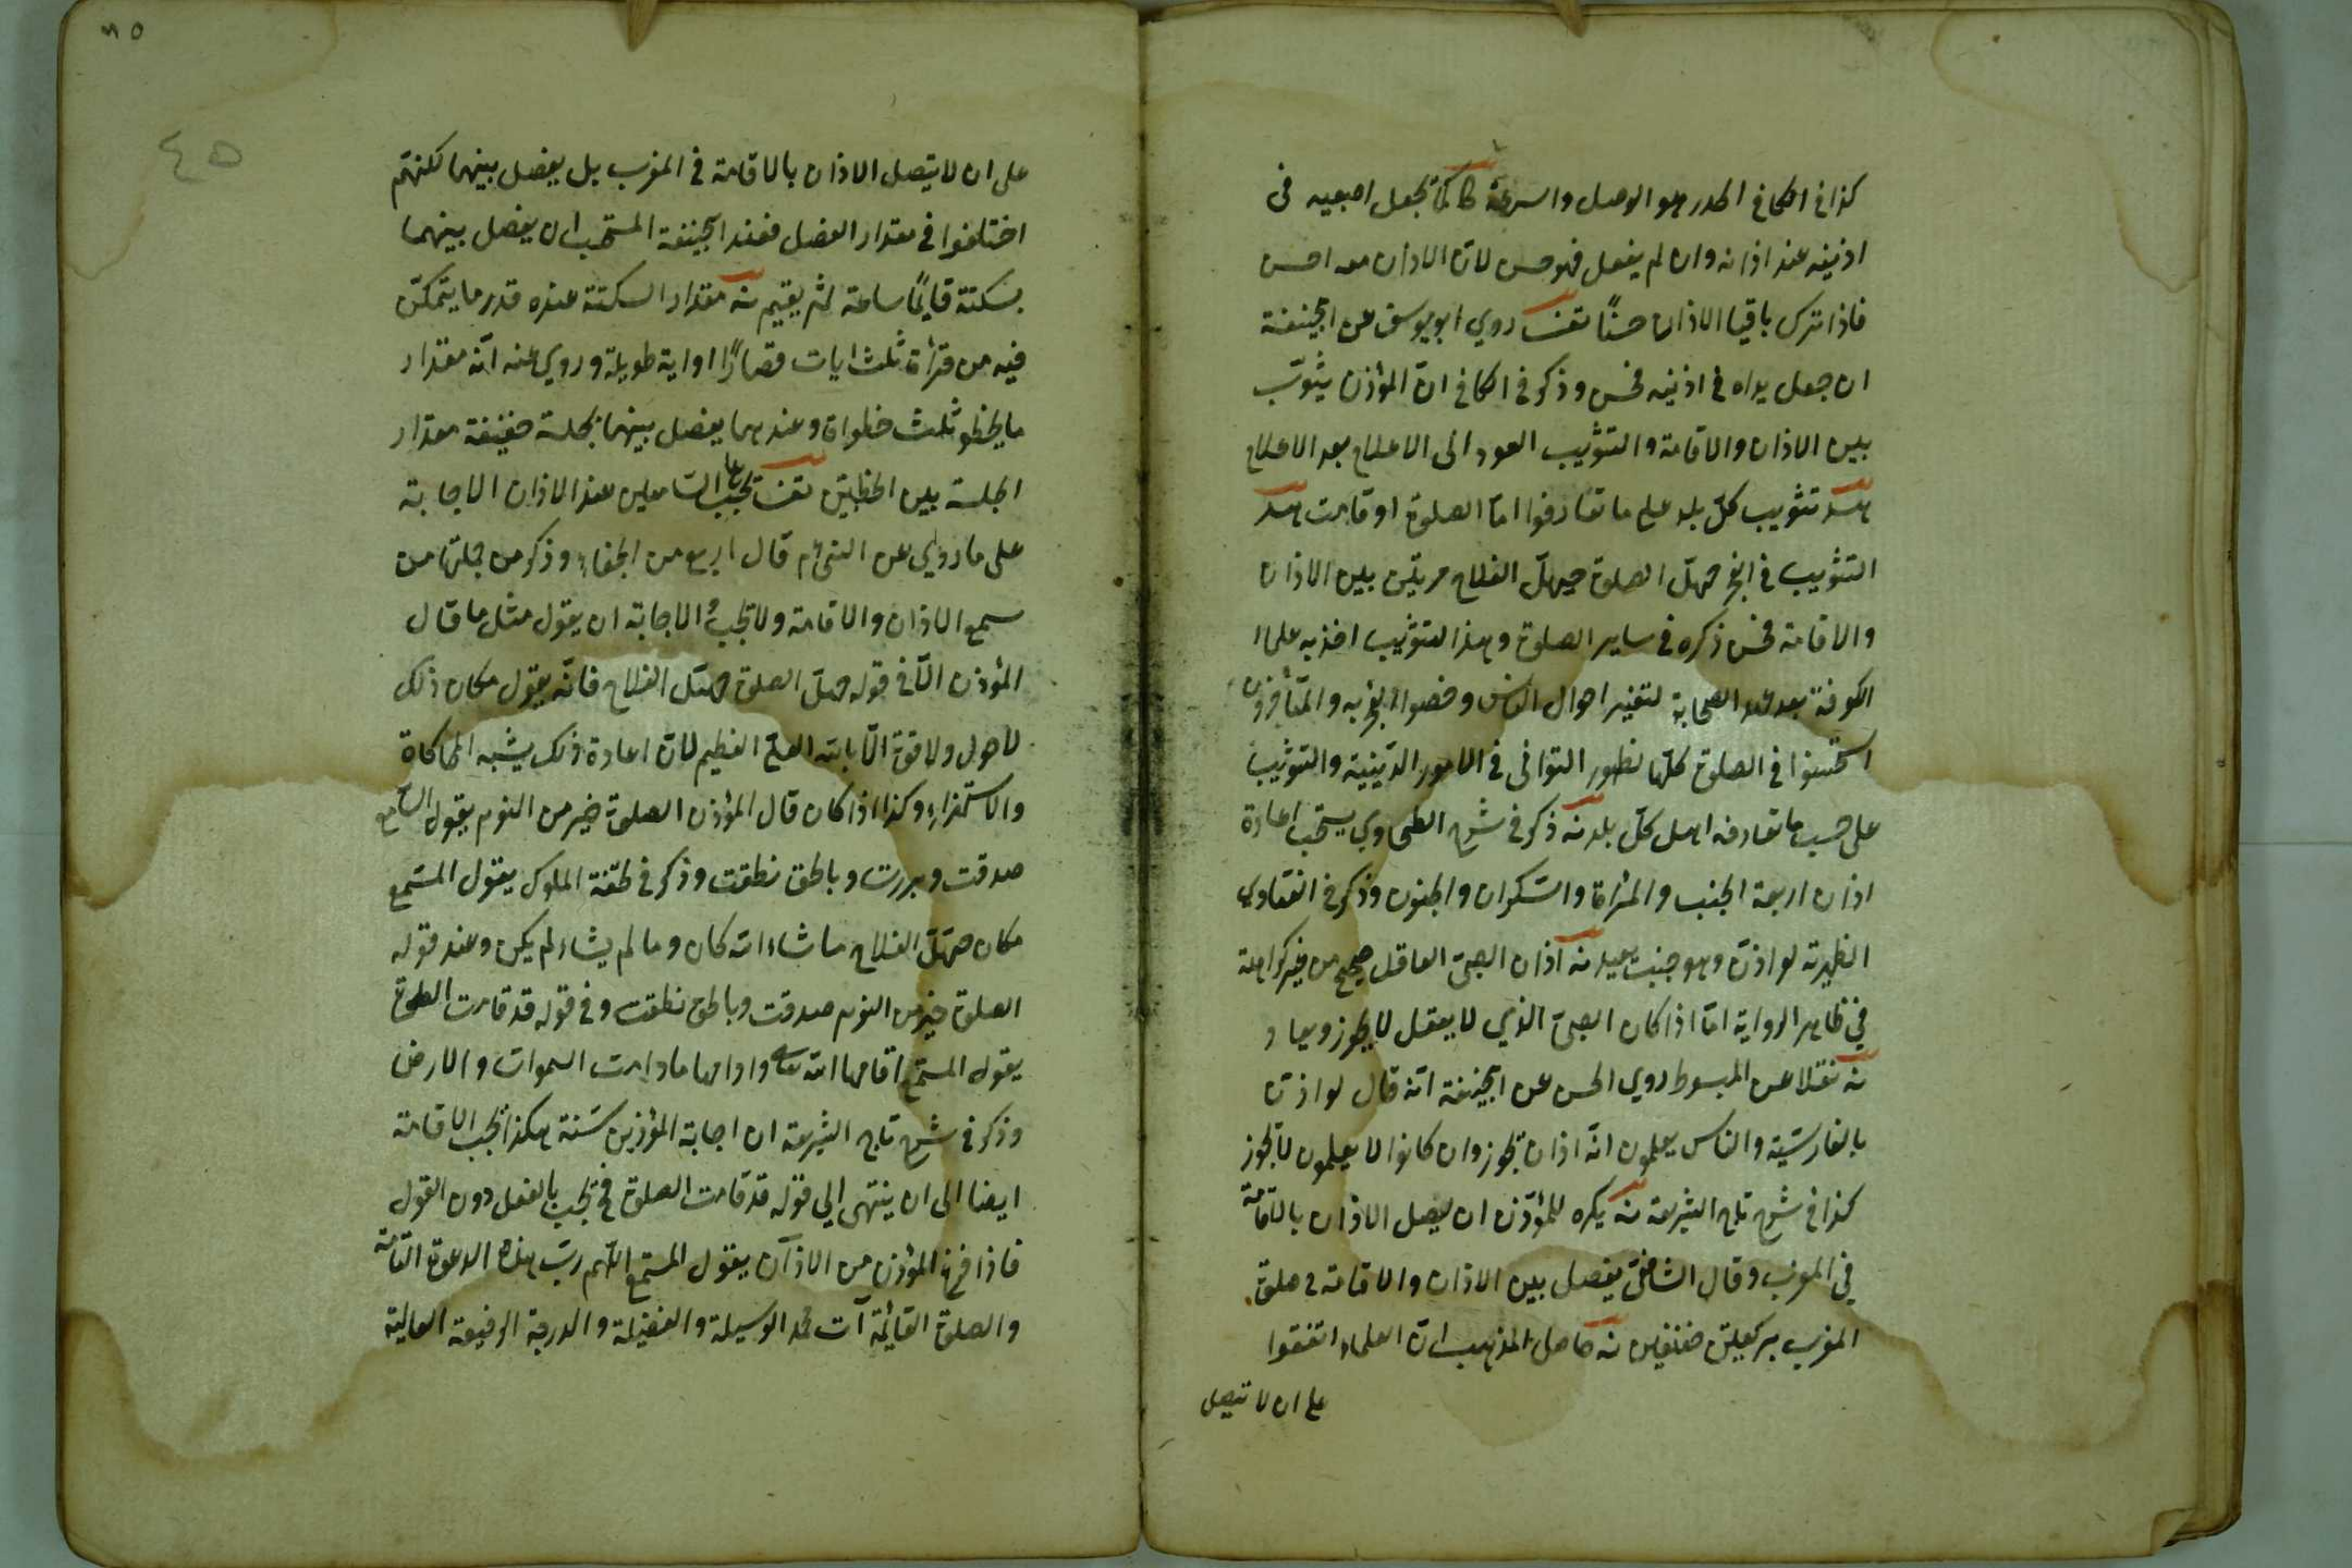 كذا في الكافي الحدر هو الوصل والسرعة كا كما يجعل اصبعيه في
اذنيه عند اذانه وان لم يفعل فهو حسن لان الاذان معه احسن
فاذا ترك باقيا الاذان حسنًا روي ابويوسف عن ابيحنيفة
ان جعل يداه في اذنيه فحسن وذكر في الكافي انّ المؤذن يثوّب
بين الاذان والاقامة والتثويب العود الى الاعلام بعد الاعلام
تثويب كلّ بلد على ما تعارفوا امّا الصلوة او قامت
التثويب في الفجر حيّ على الصلوة حيّ على الفلاح مرتين بين الاذان
والاقامة فحسن ذكره في ساير الصلوة وهذا التثويب اخذ به علماء
الكوفة بعد عهد الصحابة لتغير احوال الناس وخصوا الفجر به والمتأخرون
استحسنوا في الصلوة كلّها لظهور التواني في الامور الدينية والتثويب
على حسب ما تعارفه اهل كلّ بلد منه ذكر في شرح الطحاوي يستحب اعادة
اذان اربعة الجنب والمرأة والسّكران والمجنون وذكر في الفتاوي
الظهيرية لو اذّن وهو جنب يعيد منه اذان الصبيّ العاقل صحيح من غير كراهة
في ظاهر الرواية امّا اذا كان الصبيّ الذي لا يعقل لا يجوز ويعاد
منه نقلا عن المبسوط روي الحسن عن ابيحنيفة انّه قال لو اذّن
بالفارسيّة والناس يعلمون انّه اذان يجوز وان كانوا لا يعلمون لا يجوز
كذا في شرح تاج الشريعة منه يكره للمؤذّن ان يصل الاذان بالاقامة
في المغرب وقال الشافعيّ يفصل بين الاذان والاقامة في صلوة
المغرب بركعتين خفيفتين منه حاصل المذهب انّ العلماء اتفقوا
على ان لا تتصل
٤٥
على ان لا يتصل الاذان بالاقامة في المغرب بل يفصل بينهما لكنهم
اختلفوا في مقدار الفصل فعند ابيحنيفة المستحب ان يفصل بينهما
بسكتة قايمًا ساعة ثم يقيم منه مقدار السكتة عنده قدر ما يتمكّن
فيه من قرأة ثلث ايات قصارًا او اية طويلة وروي عنه انّه مقدار
ما يخطو ثلث خطوات وعندهما يفصل بينهما بجلسة خفيفة مقدار
الجلسة بين الخطبتين يجب على السّامعين عند الاذان الاجابة
على ما روي عن النبيّ م قال اربع من الجفاء وذكر من جملتها من
سمع الاذان والاقامة ولا يجب والاجابة ان يقول مثل ما قال
المؤذن الّا في قوله حيّ على الصلوة حيّ على الفلاح فانّه يقول مكان ذلك
لا حول ولا قوة الّا بالله العلي العظيم لانّ اعادة ذلك يشبه المحاكاة
والاستهزاء وكذا اذا كان قال المؤذن الصلوة خير من النوم يقول السّامع
صدقت وبررت وبالحق نطقت وذكر في تحفة الملوك يقول المستمع
مكان حيّ على الفلاح ما شاء الله كان وما لم يشاء لم يكن وعند قوله
الصلوة خير من النوم صدقت وبالحق نطقت وفي قوله قد قامت الصلوة
يقول المستمع اقامها الله تعالى وادامها ما دامت السموات والارض
وذكر في شرح تاج الشريعة ان اجابة المؤذين سنّة هكذا يجب الاقامة
ايضا الى ان ينتهى الي قوله قد قامت الصلوة فح يجب بالفعل دون القول
فاذا فرغ المؤذن من الاذان يقول المستمع اللّهم ربّ هذه الدعوة التامة
والصلوة القائمة آت محمد الوسيلة والفضيلة والدرجة الرفيعة العالية